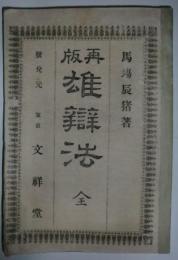 馬場辰猪著
再版
雄辯法
全
發兌元 東京 文祥堂